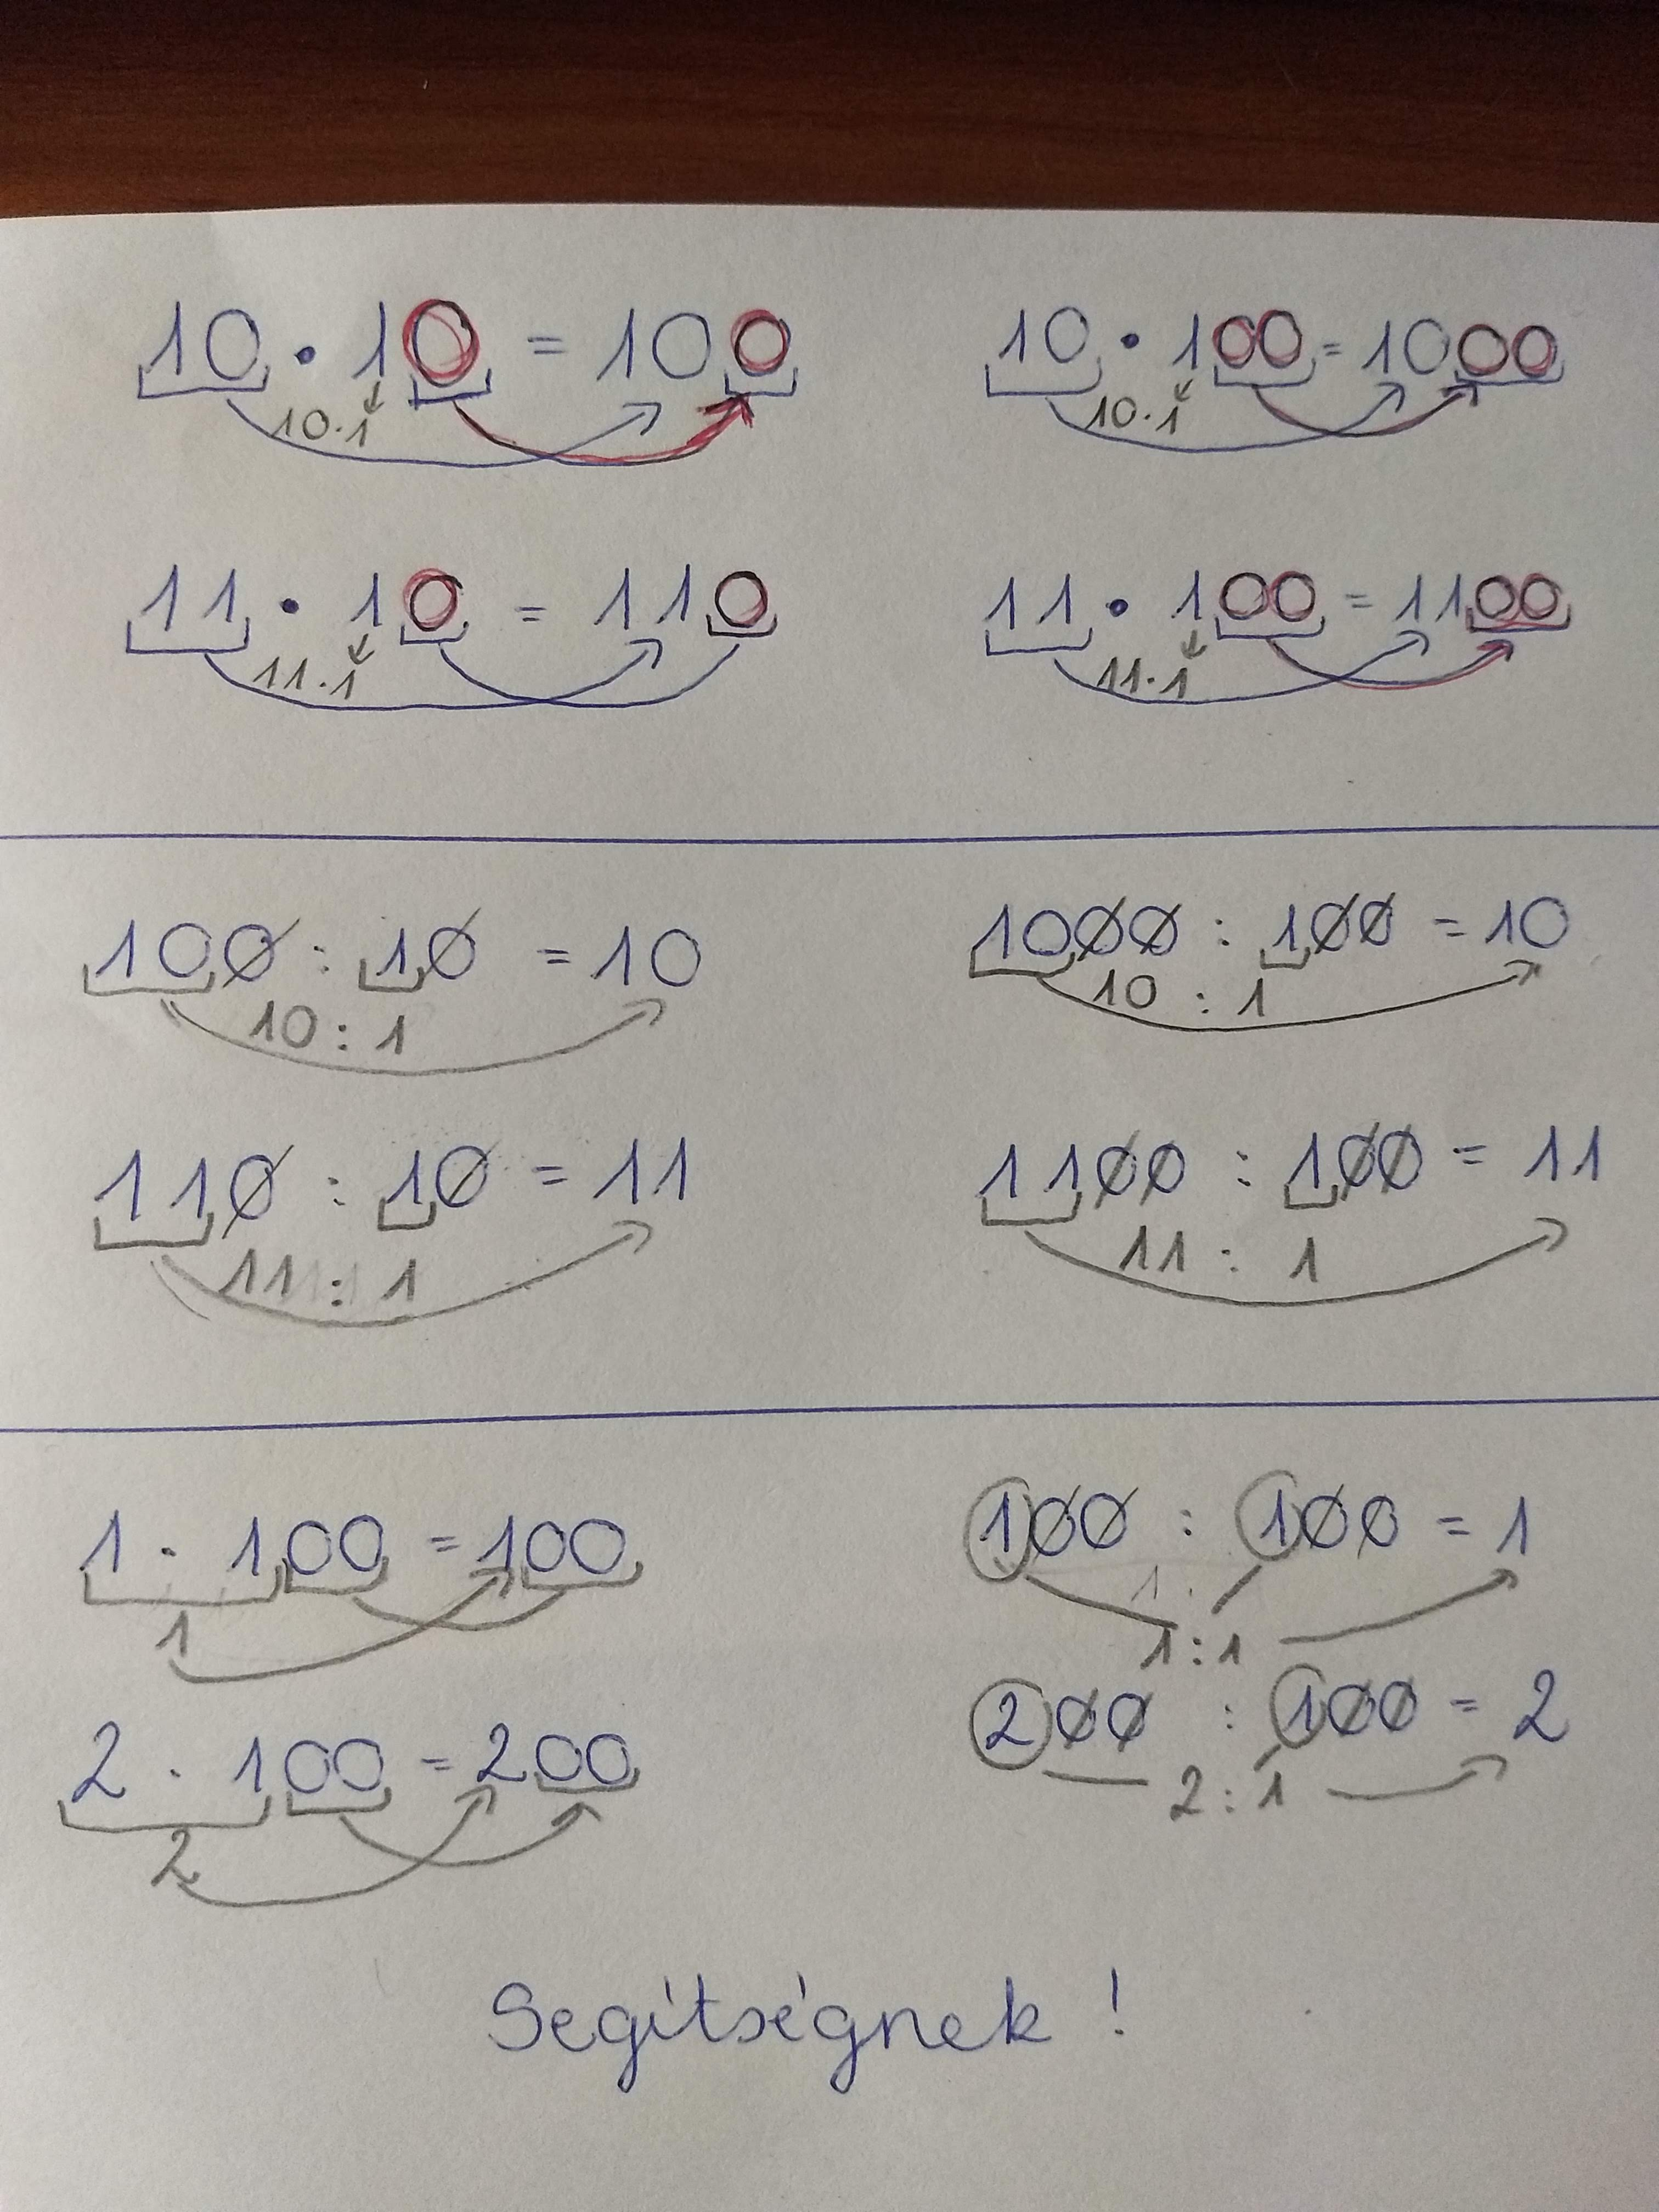 10 · 10 = 100    10 · 100 = 1000
10·1    10·1
11 · 10 = 110    11 · 100 = 1100
11·1    11·1
100 : 10 = 10    1000 : 100 = 10
10 : 1    10 : 1
110 : 10 = 11    1100 : 100 = 11
11 : 1    11 : 1
1 · 100 = 100    100 : 100 = 1
1    1 : 1
2 · 100 = 200    200 : 100 = 2
2    2 : 1
Segítségnek !